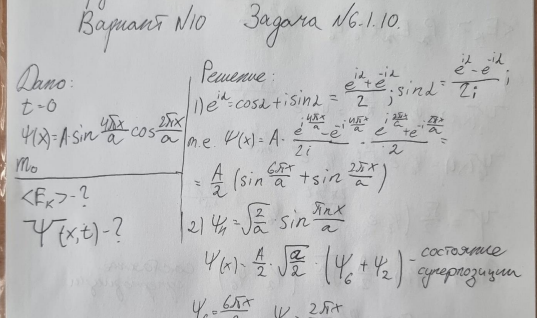 Вариант N10 Задача N6.1.10.
Дано:
t=0
Ψ(x)=A sin 4πx/a cos 2πx/a
m₀
<Eₖ>-?
Ψ(x,t)-?
Решение:
1) e^{iα}=cosα+isinα = (e^{iα}+e^{-iα})/2 ; sinα = (e^{iα}-e^{-iα})/2i ;
т.е. Ψ(x)=A· (e^{i4πx/a}-e^{-i4πx/a})/2i · (e^{i2πx/a}+e^{-i2πx/a})/2 =
= A/2 (sin 6πx/a + sin 2πx/a)
2) Ψₙ=√(2/a) · sin πnx/a
Ψ(x)= A/2 · √(a/2) · (Ψ₆+Ψ₂) - состояние
суперпозиции
6πx 2πx